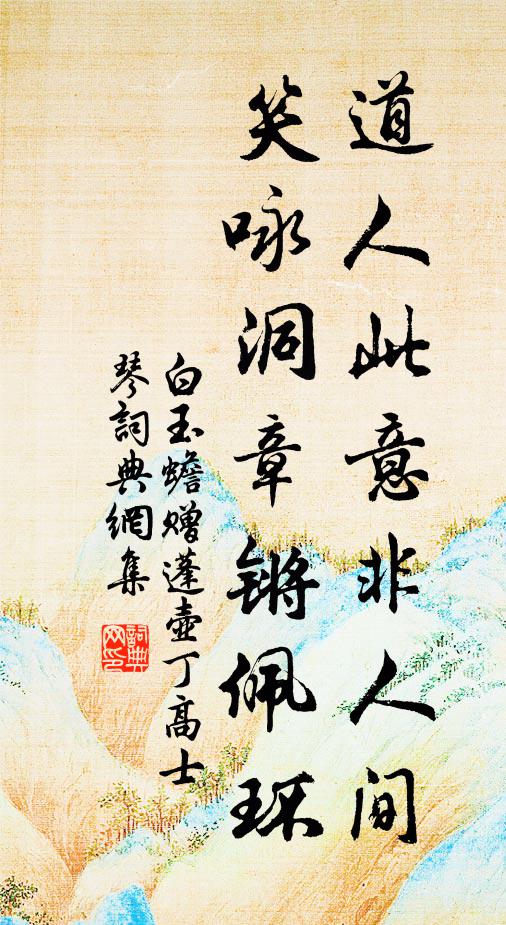 道人此意非人间
笑咏洞章锵佩环
白玉蟾赠蓬壶丁高士
琴詞典網集
詞典網印